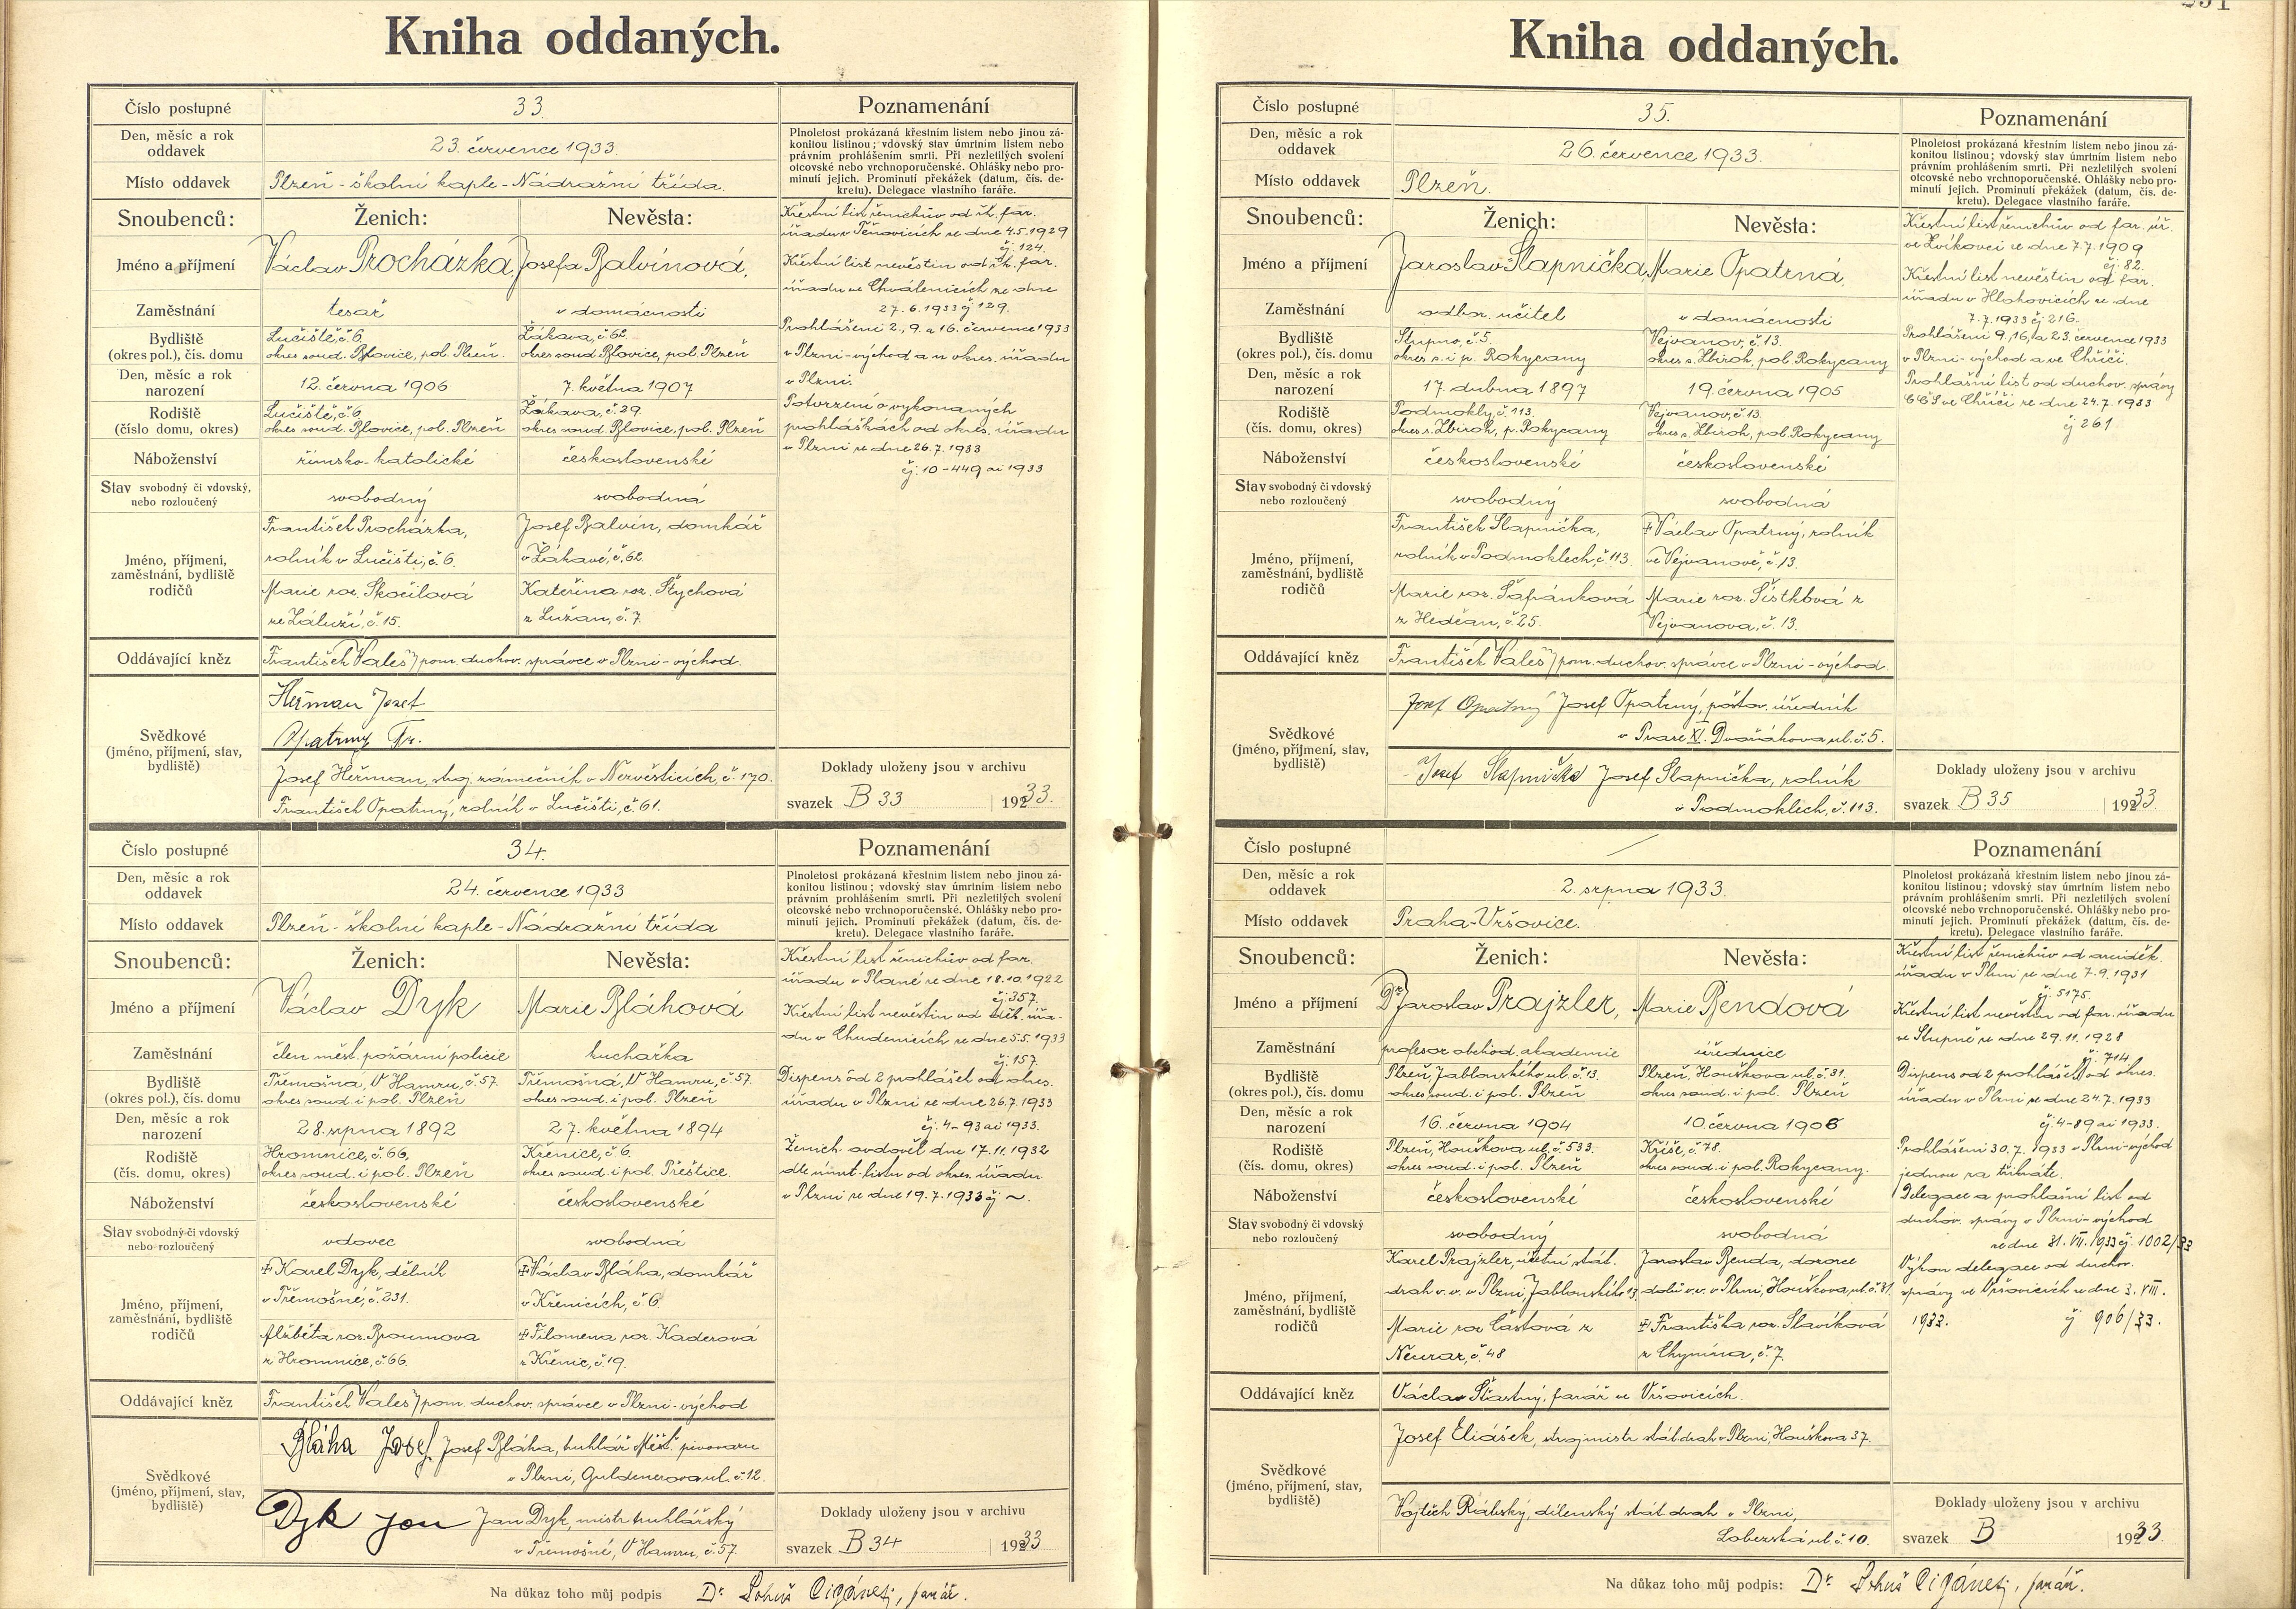 Kniha oddaných.
Číslo postupné 33.
Den, měsíc a rok oddavek 23. července 1933.
Místo oddavek Plzeň - školní kaple - Nádražní třída.
Snoubenců: Ženich: Nevěsta:
Jméno a příjmení Václav Procházka, Josefa Balvínová,
Zaměstnání tesař v domácnosti
Bydliště (okres pol.), čís. domu
Lučiště, č. 6 Žákava, č. 62.
okres soud. Blovice, pol. Plzeň. okres soud. Blovice, pol. Plzeň
Den, měsíc a rok narození 12. června 1906 7. května 1907
Rodiště (číslo domu, okres)
Lučiště, č. 6 Žákava, č. 29.
okres soud. Blovice, pol. Plzeň okres soud. Blovice, pol. Plzeň
Náboženství římsko-katolické československé
Stav svobodný či vdovský, nebo rozloučený svobodný svobodná
Jméno, příjmení, zaměstnání, bydliště rodičů
František Procházka, Josef Balvín, domkář
rolník v Lučišti, č. 6. v Žákavě, č. 62.
Marie roz. Skočilová Kateřina roz. Štychová
ze Záluží, č. 15. z Lužan, č. 7.
Oddávající kněz František Valeš, pom. duchov. správce v Plzni - východ.
Svědkové (jméno, příjmení, stav, bydliště)
Heřman Josef
Opatrný Fr.
Josef Heřman, stroj. zámečník v Nezvěsticích, č. 170.
František Opatrný, rolník v Lučišti, č. 61.
Poznamenání
Plnoletost prokázaná křestním listem nebo jinou zá-
konitou listinou; vdovský stav úmrtním listem nebo
právním prohlášením smrti. Při nezletilých svolení
otcovské nebo vrchnoporučenské. Ohlášky nebo pro-
minutí jejich. Prominutí překážek (datum, čís. de-
kretu). Delegace vlastního faráře.
Křestní list ženichův od řk. far.
úřadu v Těnovicích ze dne 4.5.1929
čj. 124.
Křestní list nevěstin od řk. far.
úřadu ve Chválenicích ze dne
27.6.1933 čj. 129.
Prohlášení 2., 9. a 16. července 1933
v Plzni - východ a u okres. úřadu
v Plzni.
Potvrzení o vykonaných
prohláškách od okres. úřadu
v Plzni ze dne 26.7.1933
čj. 10-449 ai 1933
Doklady uloženy jsou v archivu
svazek B 33 1933.
Číslo postupné 34.
Den, měsíc a rok oddavek 24. července 1933
Místo oddavek Plzeň - školní kaple - Nádražní třída
Snoubenců: Ženich: Nevěsta:
Jméno a příjmení Václav Dyk Marie Bláhová
Zaměstnání člen měst. požární policie kuchařka
Bydliště (okres pol.), čís. domu
Třemošná, V Hamru, č. 57. Třemošná, V Hamru, č. 57.
okres soud. i pol. Plzeň okres soud. i pol. Plzeň
Den, měsíc a rok narození 28. srpna 1892 27. května 1894
Rodiště (čís. domu, okres)
Hromnice, č. 66, Křenice, č. 6.
okres soud. i pol. Plzeň okres soud. i pol. Přeštice.
Náboženství československé československé
Stav svobodný či vdovský nebo rozloučený vdovec svobodná
Jméno, příjmení, zaměstnání, bydliště rodičů
‡ Karel Dyk, dělník ‡ Václav Bláha, domkář
v Třemošné, č. 231. v Křenicích, č. 6.
Alžběta roz. Broumova ‡ Filomena roz. Kaderová
z Hromnice, č. 66. z Křenic, č. 19.
Oddávající kněz František Valeš, pom. duchov. správce v Plzni - východ
Svědkové (jméno, příjmení, stav, bydliště)
Bláha Josef. Josef Bláha, truhlář Měšť. pivovaru
v Plzni, Guldenerova ul. č. 12.
Dyk Jan Jan Dyk, mistr truhlářský
v Třemošné, V Hamru, č. 57.
Poznamenání
Plnoletost prokázaná křestním listem nebo jinou zá-
konitou listinou; vdovský stav úmrtním listem nebo
právním prohlášením smrti. Při nezletilých svolení
otcovské nebo vrchnoporučenské. Ohlášky nebo pro-
minutí jejich. Prominutí překážek (datum, čís. de-
kretu). Delegace vlastního faráře.
Křestní list ženichův od far.
úřadu v Plané ze dne 18.10.1922
čj. 357.
Křestní list nevěstin od děk. úřa-
du v Chudenicích ze dne 5.5.1933
čj. 157.
Dispens od 2 prohlášek od okres.
úřadu v Plzni ze dne 26.7.1933
čj. 4-93 ai 1933.
Ženich ovdověl dne 17.11.1932
dle úmrt. listu od okres. úřadu
v Plzni ze dne 19.7.1933 čj ~.
Doklady uloženy jsou v archivu
svazek B 34 1933
Na důkaz toho můj podpis Dr. Lohuš Cigánek, farář.
Kniha oddaných.
Číslo postupné 35.
Den, měsíc a rok oddavek 26. července 1933.
Místo oddavek Plzeň.
Snoubenců: Ženich: Nevěsta:
Jméno a příjmení Jaroslav Slapnička, Marie Opatrná,
Zaměstnání odbor. učitel v domácnosti
Bydliště (okres pol.), čís. domu
Stupno, č. 5. Vejvanov, č. 13.
okres s. i p. Rokycany okres s. Zbiroh, pol. Rokycany
Den, měsíc a rok narození 17. dubna 1897 19. června 1905
Rodiště (čís. domu, okres)
Podmokly, č. 113. Vejvanov, č. 13.
okres s. Zbiroh, p. Rokycany okres s. Zbiroh, pol. Rokycany
Náboženství československé československé
Stav svobodný či vdovský nebo rozloučený svobodný svobodná
Jméno, příjmení, zaměstnání, bydliště rodičů
František Slapnička, ‡ Václav Opatrný, rolník
rolník v Podmoklech, č. 113. ve Vejvanově, č. 13.
Marie roz. Šafránková Marie roz. Šístková z
z Hedčan, č. 25. Vejvanova, č. 13.
Oddávající kněz František Valeš, pom. duchov. správce v Plzni - východ.
Svědkové (jméno, příjmení, stav, bydliště)
Josef Opatrný Josef Opatrný, poštov. úředník
v Praze XI. Dvořákova ul. č. 5.
Josef Slapnička Josef Slapnička, rolník
v Podmoklech, č. 113.
Poznamenání
Plnoletost prokázaná křestním listem nebo jinou zá-
konitou listinou; vdovský stav úmrtním listem nebo
právním prohlášením smrti. Při nezletilých svolení
otcovské nebo vrchnoporučenské. Ohlášky nebo pro-
minutí jejich. Prominutí překážek (datum, čís. de-
kretu). Delegace vlastního faráře.
Křestní list ženichův od far. úř.
ve Zvíkovci ze dne 7.7.1909
čj. 82.
Křestní list nevěstin od far.
úřadu v Hlohovicích ze dne
7.7.1933 čj 216.
Prohlášení 9., 16. a 23. července 1933
v Plzni - východ a ve Chříči.
Prohlašní list od duchov. správy
CČS ve Chříči ze dne 24.7.1933
čj 261
Doklady uloženy jsou v archivu
svazek B 35 1933
Číslo postupné /
Den, měsíc a rok oddavek 2. srpna 1933.
Místo oddavek Praha-Vršovice.
Snoubenců: Ženich: Nevěsta:
Jméno a příjmení Dr. Jaroslav Prajzler, Marie Bendová
Zaměstnání profesor obchod. akademie úřednice
Bydliště (okres pol.), čís. domu
Plzeň, Jablonského ul. č. 13. Plzeň, Houškova ul. č. 31.
okres soud. i pol. Plzeň okres soud. i pol. Plzeň
Den, měsíc a rok narození 16. června 1904 10. června 1908
Rodiště (čís. domu, okres)
Plzeň, Houškova ul. č. 533. Kříše, č. 78.
okres soud. i pol. Plzeň okres soud. i pol. Rokycany.
Náboženství československé československé
Stav svobodný či vdovský nebo rozloučený svobodný svobodná
Jméno, příjmení, zaměstnání, bydliště rodičů
Karel Prajzler, účetní stát. Jaroslav Benda, dozorce
drah v. v. v Plzni, Jablonského 13. dolů v. v. v Plzni, Houškova ul. č. 31.
Marie roz Častová z ‡ Františka roz. Slavíková
Neuraz, č. 48 z Chynína, č. 7.
Oddávající kněz Václav Šťastný, farář ve Vršovicích.
Svědkové (jméno, příjmení, stav, bydliště)
Josef Eliášek, strojmistr stát. drah v Plzni, Houškova 37.
Vojtěch dílenský stát. drah v Plzni,
Lobezská ul č. 10.
Poznamenání
Plnoletost prokázaná křestním listem nebo jinou zá-
konitou listinou; vdovský stav úmrtním listem nebo
právním prohlášením smrti. Při nezletilých svolení
otcovské nebo vrchnoporučenské. Ohlášky nebo pro-
minutí jejich. Prominutí překážek (datum, čís. de-
kretu). Delegace vlastního faráře.
Křestní list ženichův od arciděk.
úřadu v Plzni ze dne 7.9.1931
čj. 5175.
Křestní list nevěstin od far. úřadu
ve Stupně ze dne 29.11.1928
čj. 714
Dispens od 2 prohlášek od okres.
úřadu v Plzni ze dne 24.7.1933
čj. 4-89 ai 1933.
Prohlášení 30.7.1933 v Plzni-východ
jednou za třikráte.
Delegace a prohlašní list od
duchov. správy v Plzni-východ
ze dne 31. VII. 1933 čj. 1002/33
Výkon delegace od duchov.
správy ve Vršovicích ze dne 3. VIII.
1933. čj 906/33.
Doklady uloženy jsou v archivu
svazek B 1933.
Na důkaz toho můj podpis: Dr. Lohuš Cigánek, farář.